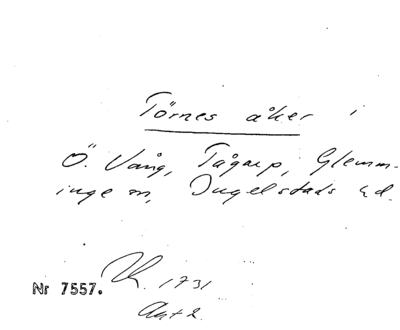 Törnes åker i
Ö. Vång, Tågarp, Glemm-
inge sn, Ingelstads hd.
Nr 7557. K. 1731
Akt 2.